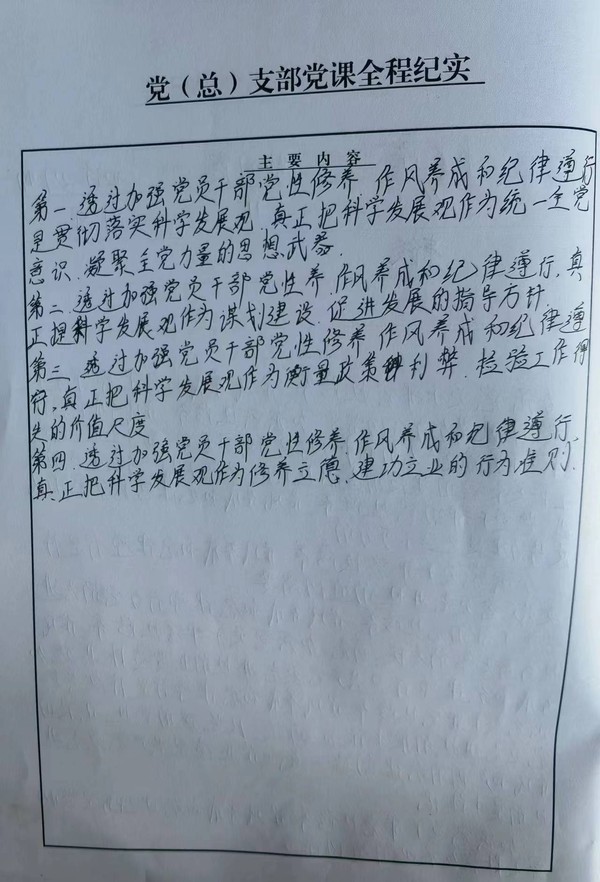 党（总）支部党课全程纪实
主要内容
第一.透过加强党员干部党性修养.作风养成和纪律遵行
是贯彻落实科学发展观.真正把科学发展观作为统一全党
意识.凝聚全党力量的思想武器.
第二.透过加强党员干部党性养.作风养成和纪律遵行,真
正捏科学发展观作为谋划建设.促进发展的指导方针.
第三.透过加强党员干部党性修养.作风养成和纪律遵
行,真正把科学发展观作为衡量政策利弊.检验工作得
失的价值尺度
第四.透过加强党员干部党性修养.作风养成和纪律遵行.
真正把科学发展观作为修养立德.建功立业的行为准则.